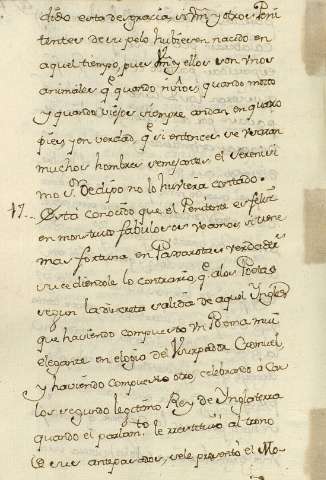 dicho esta desgracia, si Vm. y otros Peni
tentes de su pelo hubiesen nacido en
aquel tiempo, pues Vm. y ellos son unos
animales q.e quando niños, quando mozos
y quando viejos siempre andan en quatro
pies; y en verdad, q.e si entonces se usaran
muchos hombres semejantes, el serenisi
mo S. Bedipo no lo huviera contado.
17... Está conocido que el Penitente es feliz
en monstruos fabulosos veamos si tiene
mas fortuna en Paparotas verdade
sucediendole lo contrario, q.e a los Poetas
segun la discreta salida de aquel Ingles
que haviendo compuesto un Poema mui
elegante en elogio del Usurpador Cromuel,
y haviendo compuesto otro celebrando a Car
los segundo legitimo Rey de Ynglaterra
quando el parlam.to le restituió al trono
de sus antepasados, se le presentó el Mo-